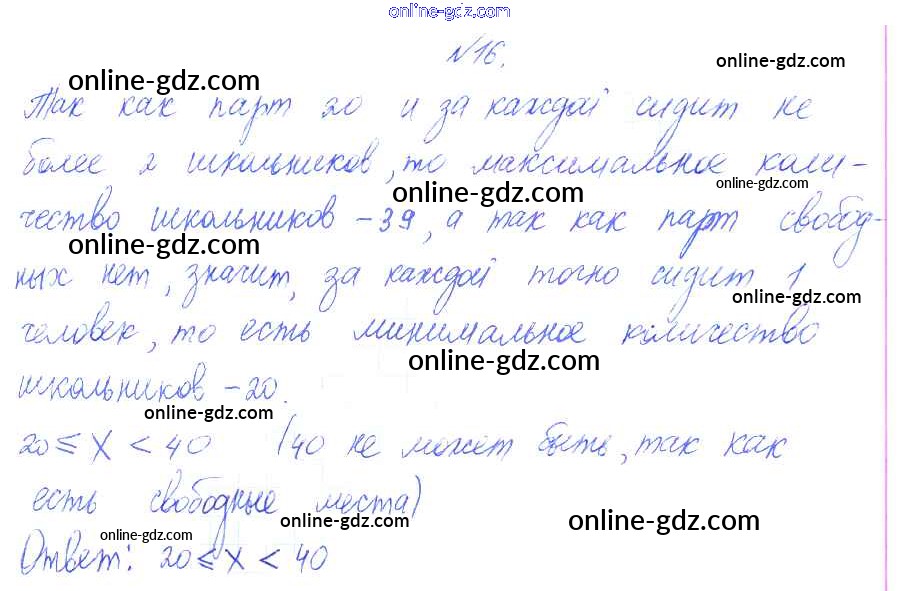 online-gdz.com
№16.
online-gdz.com
online-gdz.com
Так как парт 20 и за каждой сидит не
более 2 школьников, то максимальное коли-
online-gdz.com
online-gdz.com
чество школьников - 39, а так как парт свобод-
online-gdz.com
ных нет, значит, за каждой точно сидит 1
online-gdz.com
человек, то есть минимальное количество
online-gdz.com
школьников - 20.
online-gdz.com
20 ≤ x < 40 (40 не может быть, так как
есть свободные места)
online-gdz.com
online-gdz.com
online-gdz.com
Ответ: 20 ≤ x < 40